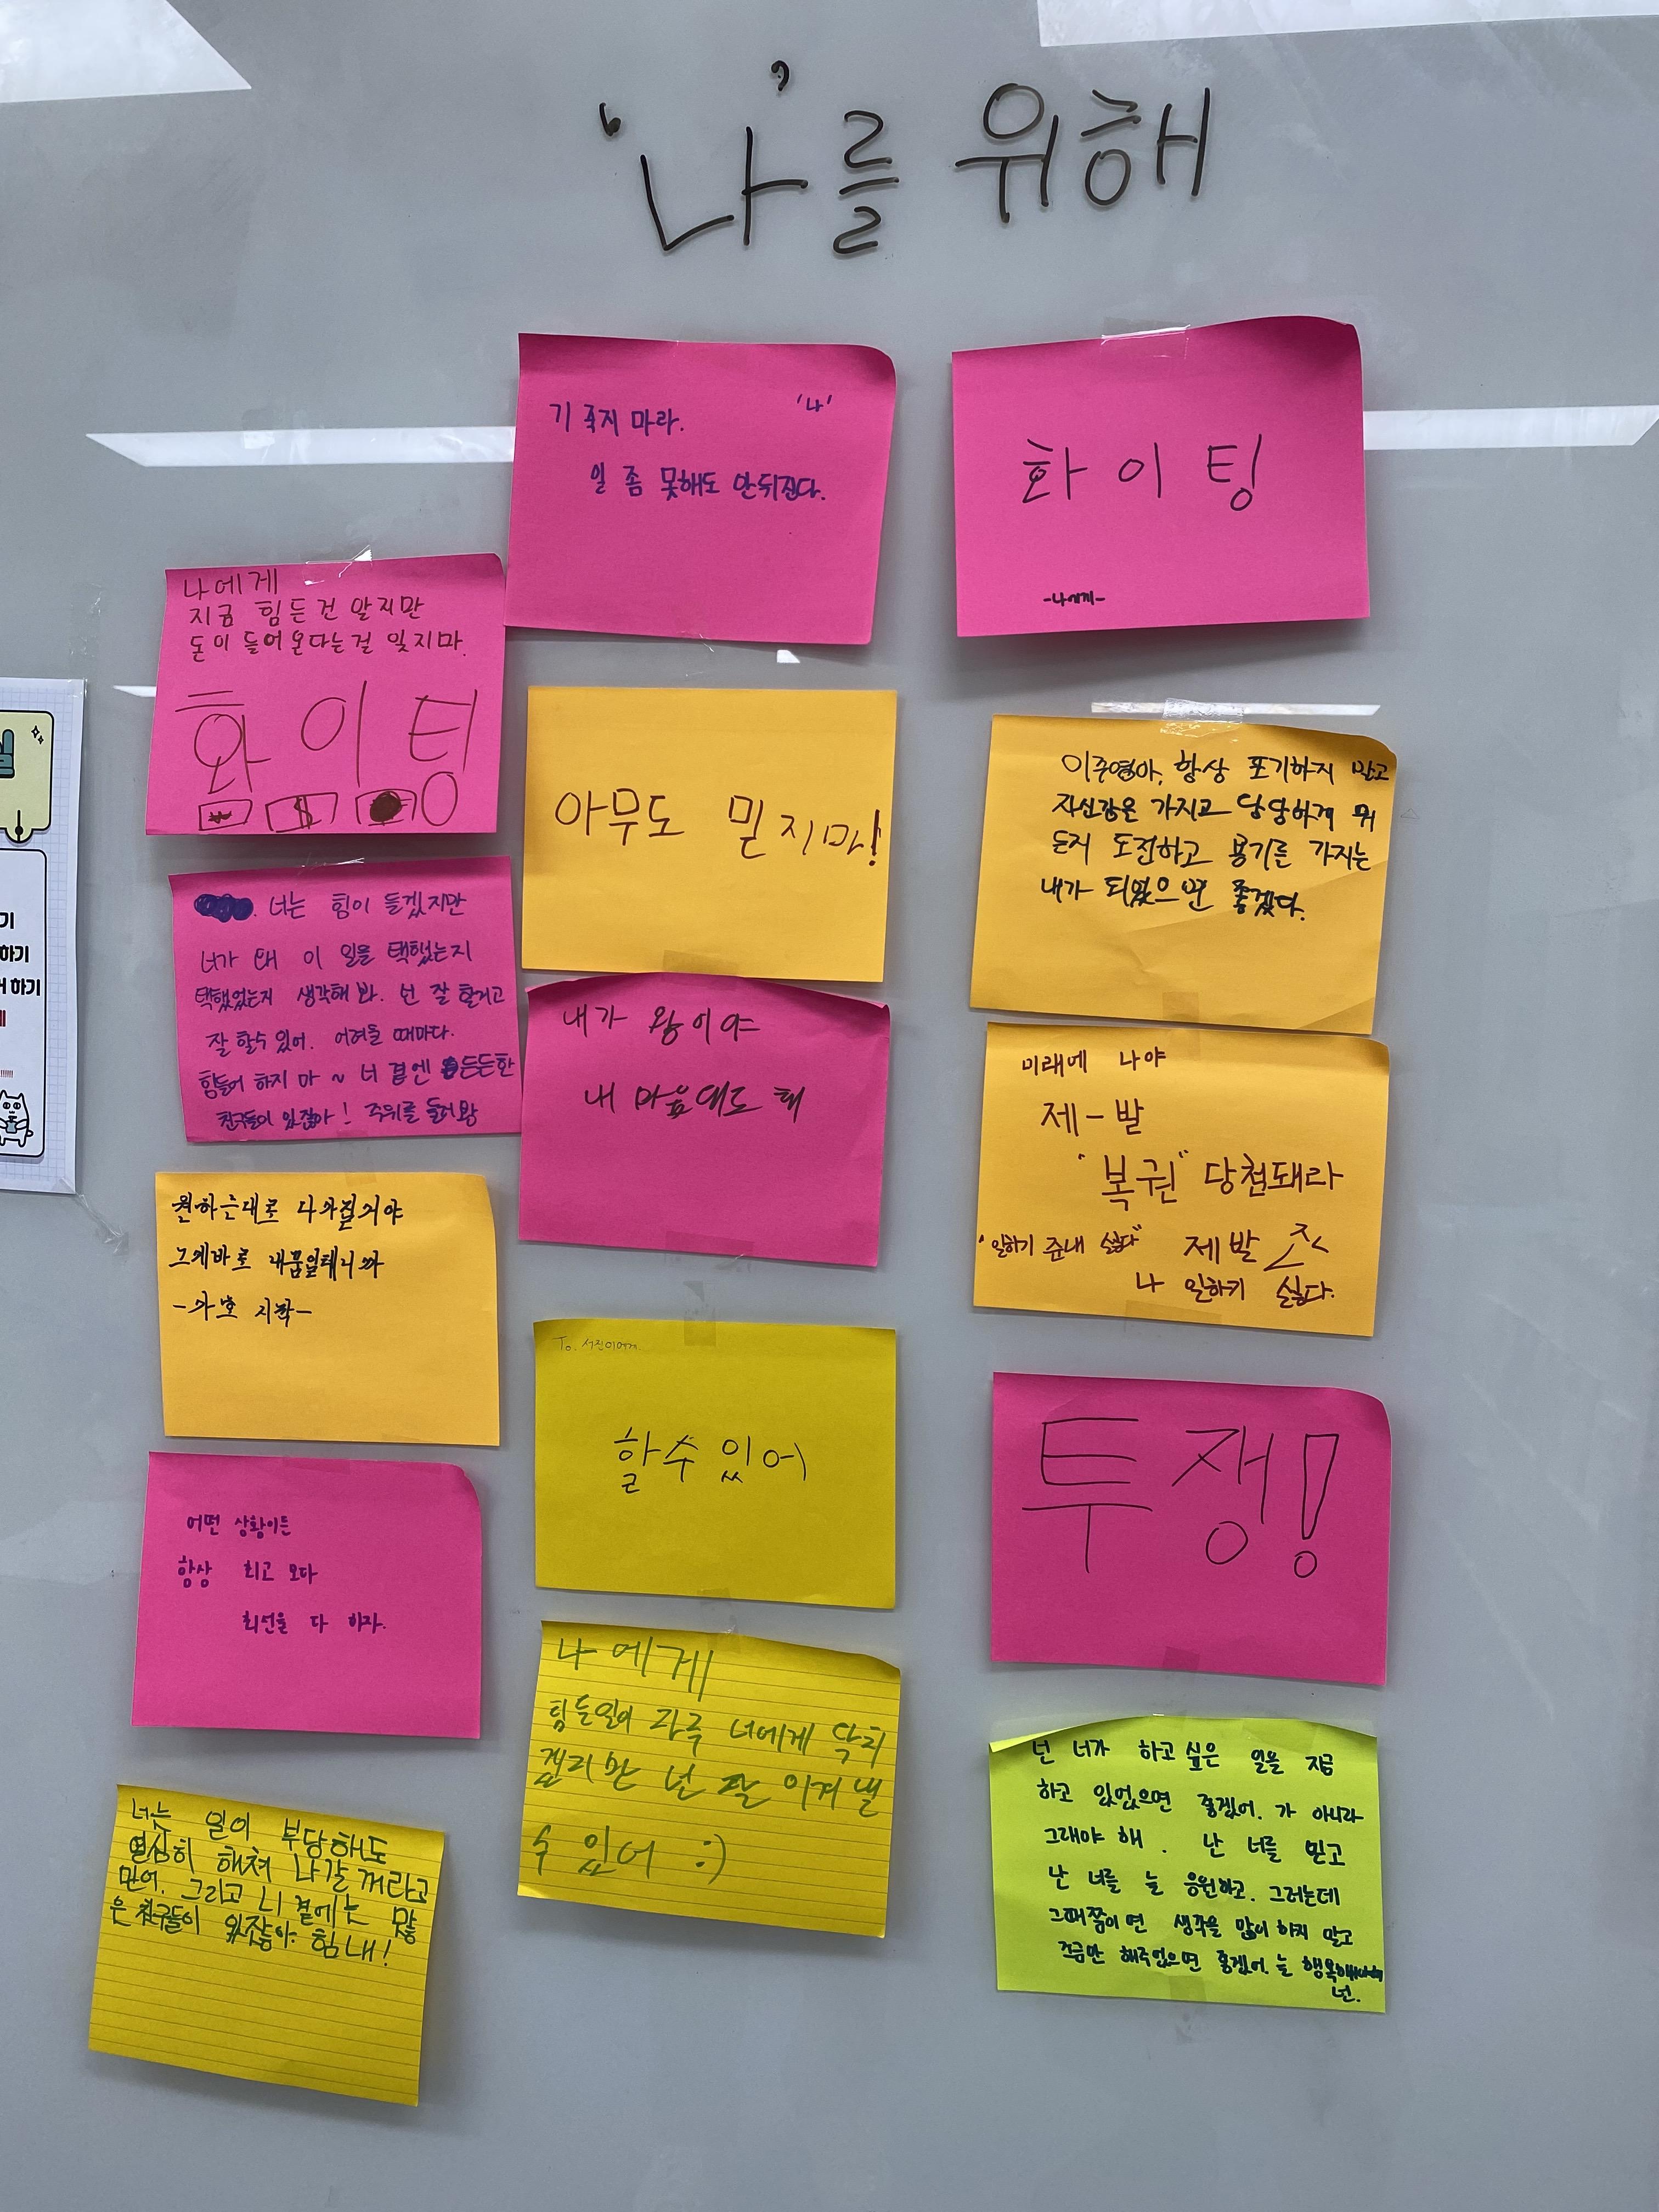 '나'를 위해
'나'
기 죽지 마라.
일 좀 못해도 안뒤진다.
화이팅
-나에게-
나에게
지금 힘든건 알지만
돈이 들어온다는걸 잊지마.
화이팅
아무도 믿지마!
이준영아, 항상 포기하지 말고
자신감은 가지고 당당하게 뭐
든지 도전하고 용기를 가지는
내가 되었으면 좋겠다.
너는 힘이 들겠지만
너가 왜 이 일을 택했는지
택했었는지 생각해 봐. 넌 잘 할거고
잘 할수 있어. 어려울 때마다.
힘들어 하지 마 ~ 너 곁엔 든든한
친구들이 있잖아! 주위를 둘러봐
내가 왕이야
내 마음대로 해
미래에 나야
제-발
"복권" 당첨돼라
"일하기 쥰내 싫다" 제발
나 일하기 싫다.
원하는대로 다 가질거야
그게바로 내꿈일테니까
To. 서진이에게
할수있어
투쟁!
어떤 상황이든
항상 최고 보다
최선을 다 하자.
나에게
힘든일이 자주 너에게 닥치
겠지만 넌 잘 이겨낼
수 있어 :)
넌 너가 하고싶은 일을 지금
하고 있었으면 좋겠어. 가 아니라
그래야 해. 난 너를 믿고
난 너를 늘 응원하고. 그러는데
그때쯤이면 생각을 많이 하지 말고
조금만 해주었으면 좋겠어. 늘
넌.
너는 일이 부당해도
열심히 해쳐 나갈꺼라고
믿어. 그리고 니 곁에는 많
은 친구들이 있잖아. 힘내!
기
하기
하기